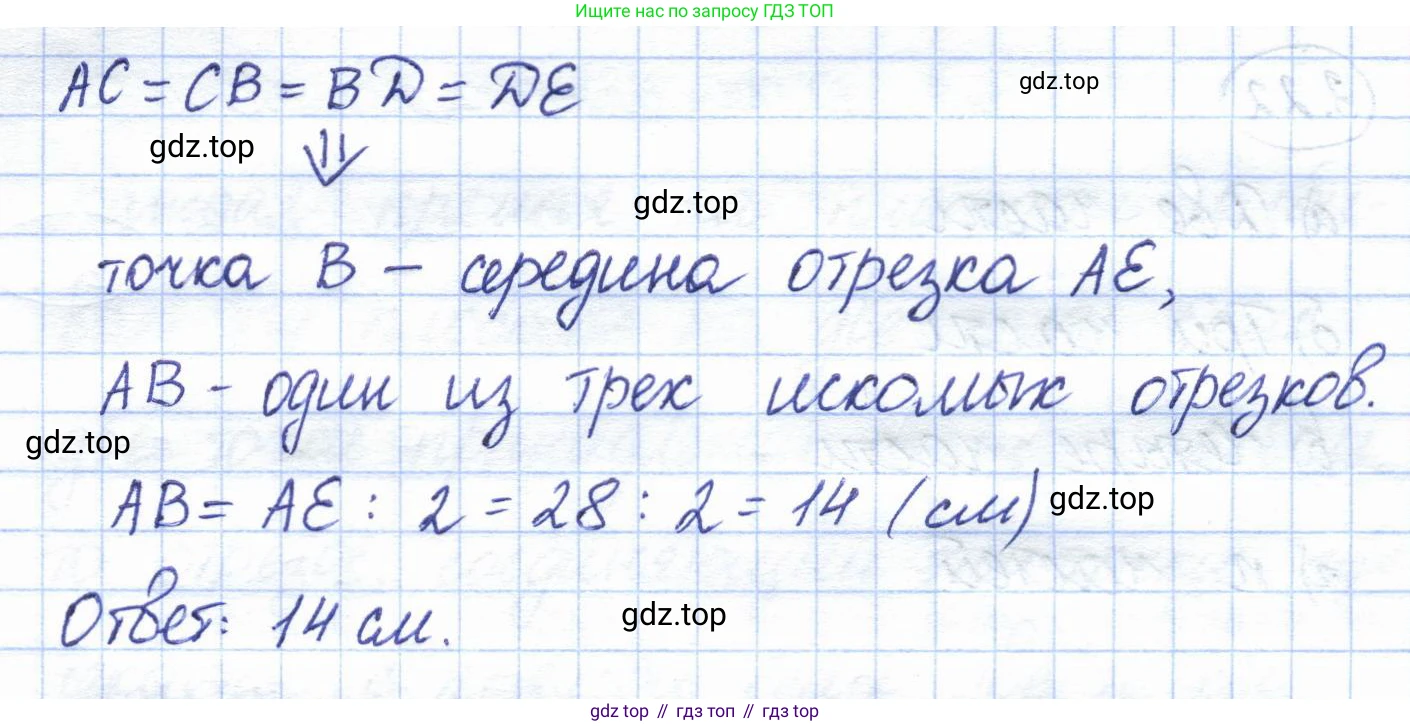 Ищите нас по запросу ГДЗ ТОП
AC = CB = BD = DE
gdz.top
gdz.top
⇓
gdz.top
точка B – середина отрезка AE,
AB - один из трех искомых отрезков.
gdz.top
AB = AE : 2 = 28 : 2 = 14 (см)
gdz.top
Ответ: 14 см.
gdz.top
gdz top // гдз топ // гдз top